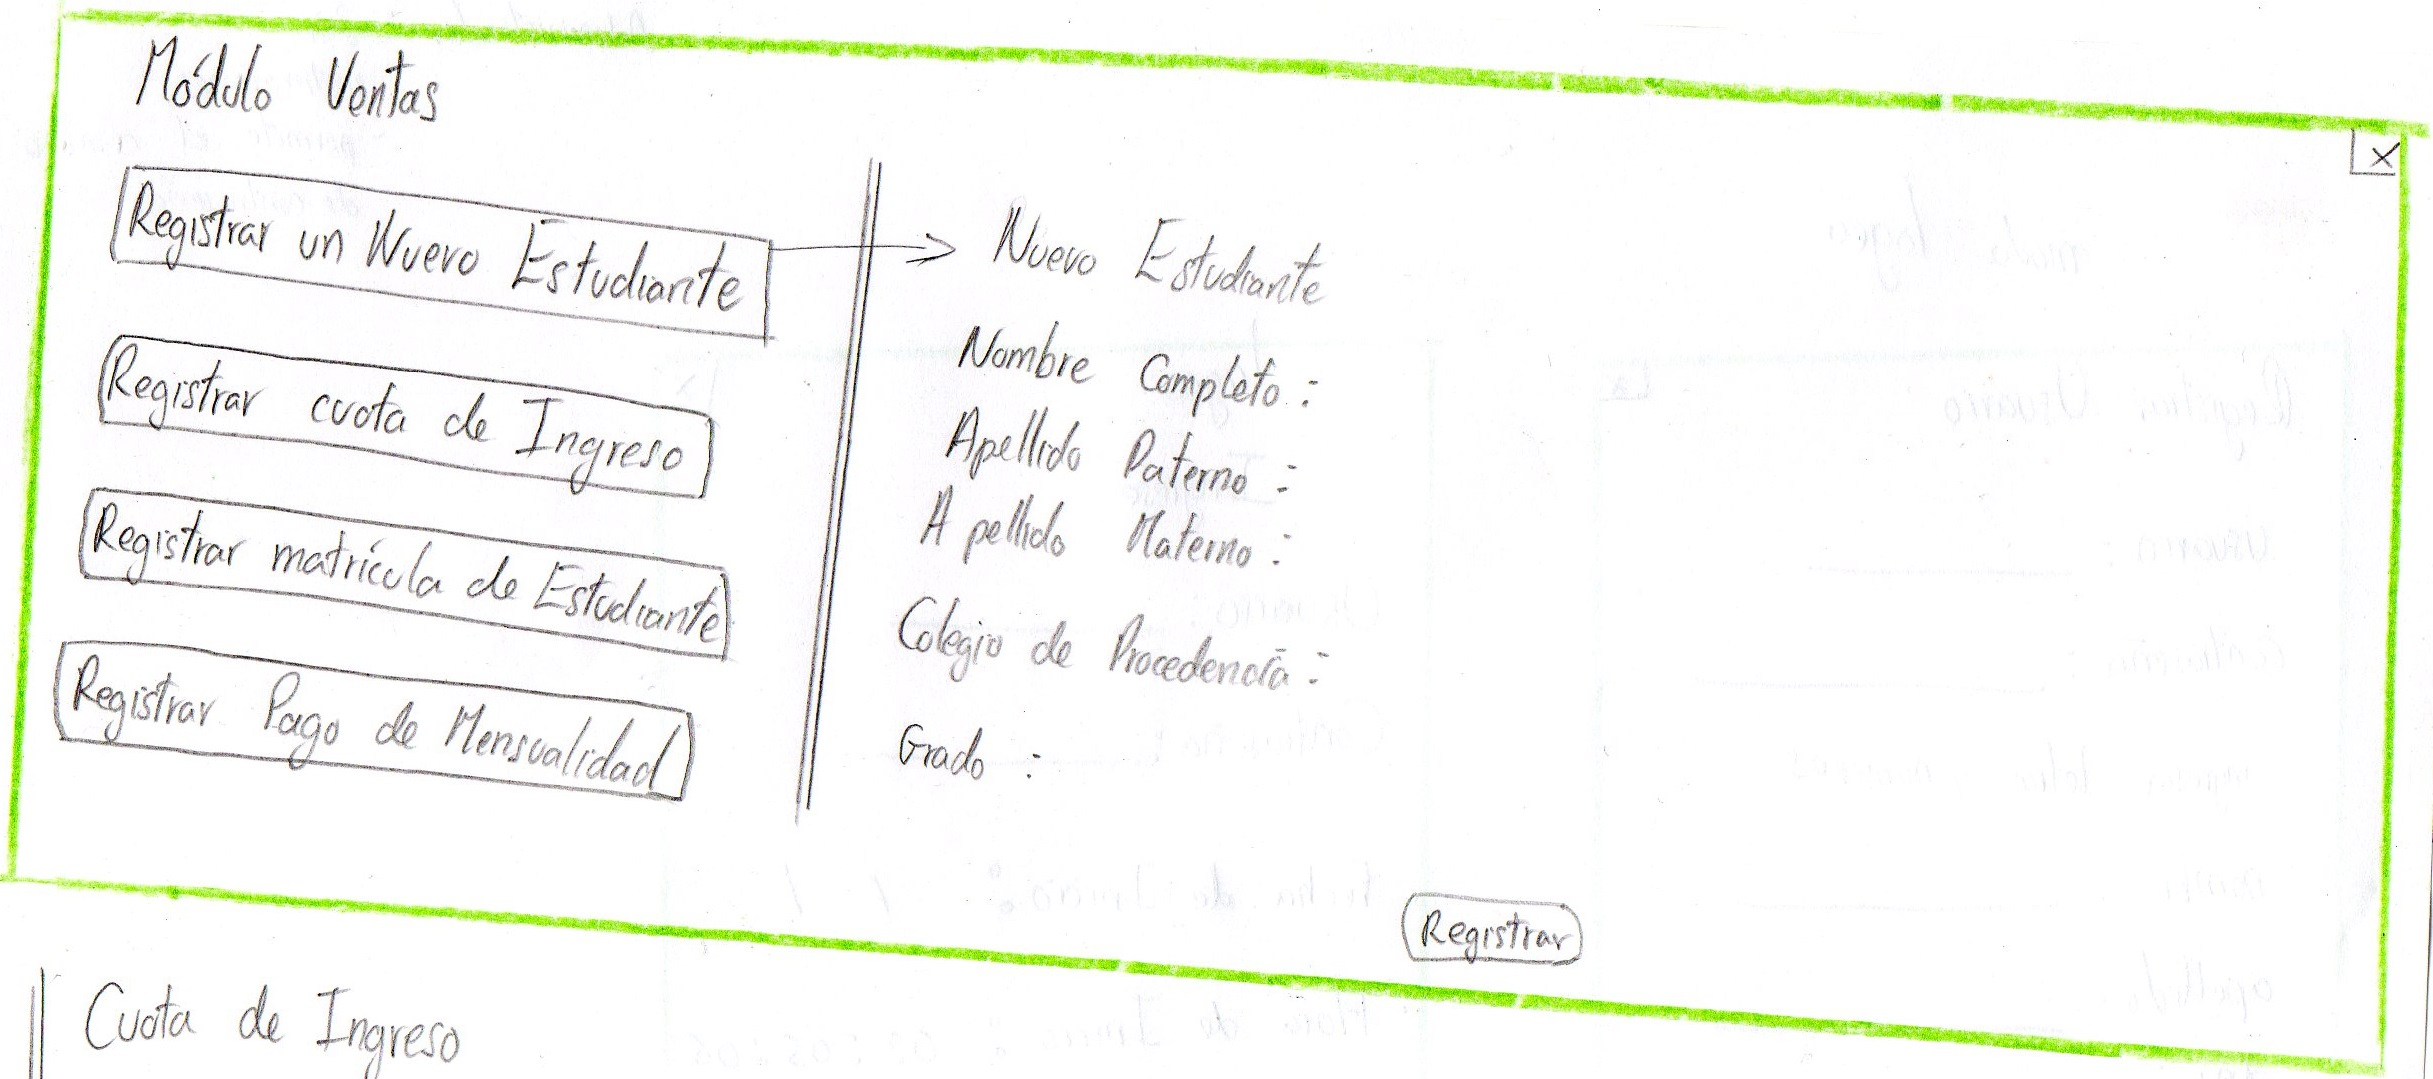 Módulo Ventas
X
Registrar un Nuevo Estudiante
Registrar cuota de Ingreso
Registrar matrícula de Estudiante
Registrar Pago de Mensualidad
Nuevo Estudiante
Nombre Completo :
Apellido Paterno :
Apellido Materno :
Colegio de Procedencia :
Grado :
Registrar
Cuota de Ingreso